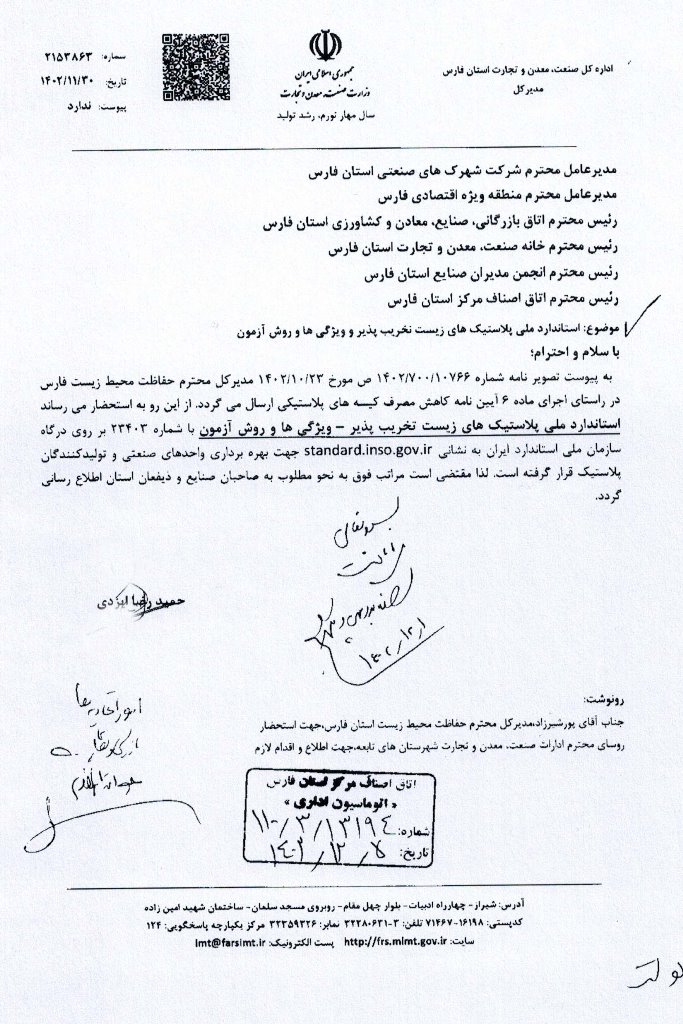 اداره کل صنعت، معدن و تجارت استان فارس
مدیرکل
جمهوری اسلامی ایران
وزارت صنعت، معدن و تجارت
سال مهار تورم، رشد تولید
شماره: ۲۱۵۳۸۶۳
تاریخ: ۱۴۰۲/۱۱/۳۰
پیوست: ندارد
مدیرعامل محترم شرکت شهرک های صنعتی استان فارس
مدیرعامل محترم منطقه ویژه اقتصادی فارس
رئیس محترم اتاق بازرگانی، صنایع، معادن و کشاورزی استان فارس
رئیس محترم خانه صنعت، معدن و تجارت استان فارس
رئیس محترم انجمن مدیران صنایع استان فارس
رئیس محترم اتاق اصناف مرکز استان فارس
موضوع: استاندارد ملی پلاستیک های زیست تخریب پذیر و ویژگی ها و روش آزمون
با سلام و احترام؛
به پیوست تصویر نامه شماره ۱۴۰۲/۷۰۰/۱۰۷۶۶ ص مورخ ۱۴۰۲/۱۰/۲۳ مدیرکل محترم حفاظت محیط زیست فارس
در راستای اجرای ماده ۶ آیین نامه کاهش مصرف کیسه های پلاستیکی ارسال می گردد. از این رو به استحضار می رساند
استاندارد ملی پلاستیک های زیست تخریب پذیر – ویژگی ها و روش آزمون با شماره ۲۳۴۰۳ بر روی درگاه
سازمان ملی استاندارد ایران به نشانی standard.inso.gov.ir جهت بهره برداری واحدهای صنعتی و تولیدکنندگان
پلاستیک قرار گرفته است. لذا مقتضی است مراتب فوق به نحو مطلوب به صاحبان صنایع و ذیفعان استان اطلاع رسانی
گردد.
حمید رضا ایزدی
رونوشت:
جناب آقای پورشیرزاد،مدیرکل محترم حفاظت محیط زیست استان فارس،جهت استحضار
روسای محترم ادارات صنعت، معدن و تجارت شهرستان های تابعه،جهت اطلاع و اقدام لازم
اتاق اصناف مرکز استان فارس
« اتوماسیون اداری »
شماره: ۱۱۰/۳/۱۳۱۹۴
تاریخ:
آدرس: شیراز- چهارراه ادبیات- بلوار چهل مقام- روبروی مسجد سلمان- ساختمان شهید امین زاده
کدپستی: ۱۶۱۹۸-۷۱۴۶۷ تلفن: ۳-۳۲۲۸۰۶۳۱ نمابر: ۳۲۳۵۹۳۲۶ مرکز یکپارچه پاسخگویی: ۱۲۴
سایت: http://frs.mimt.gov.ir پست الکترونیک: imt@farsimt.ir